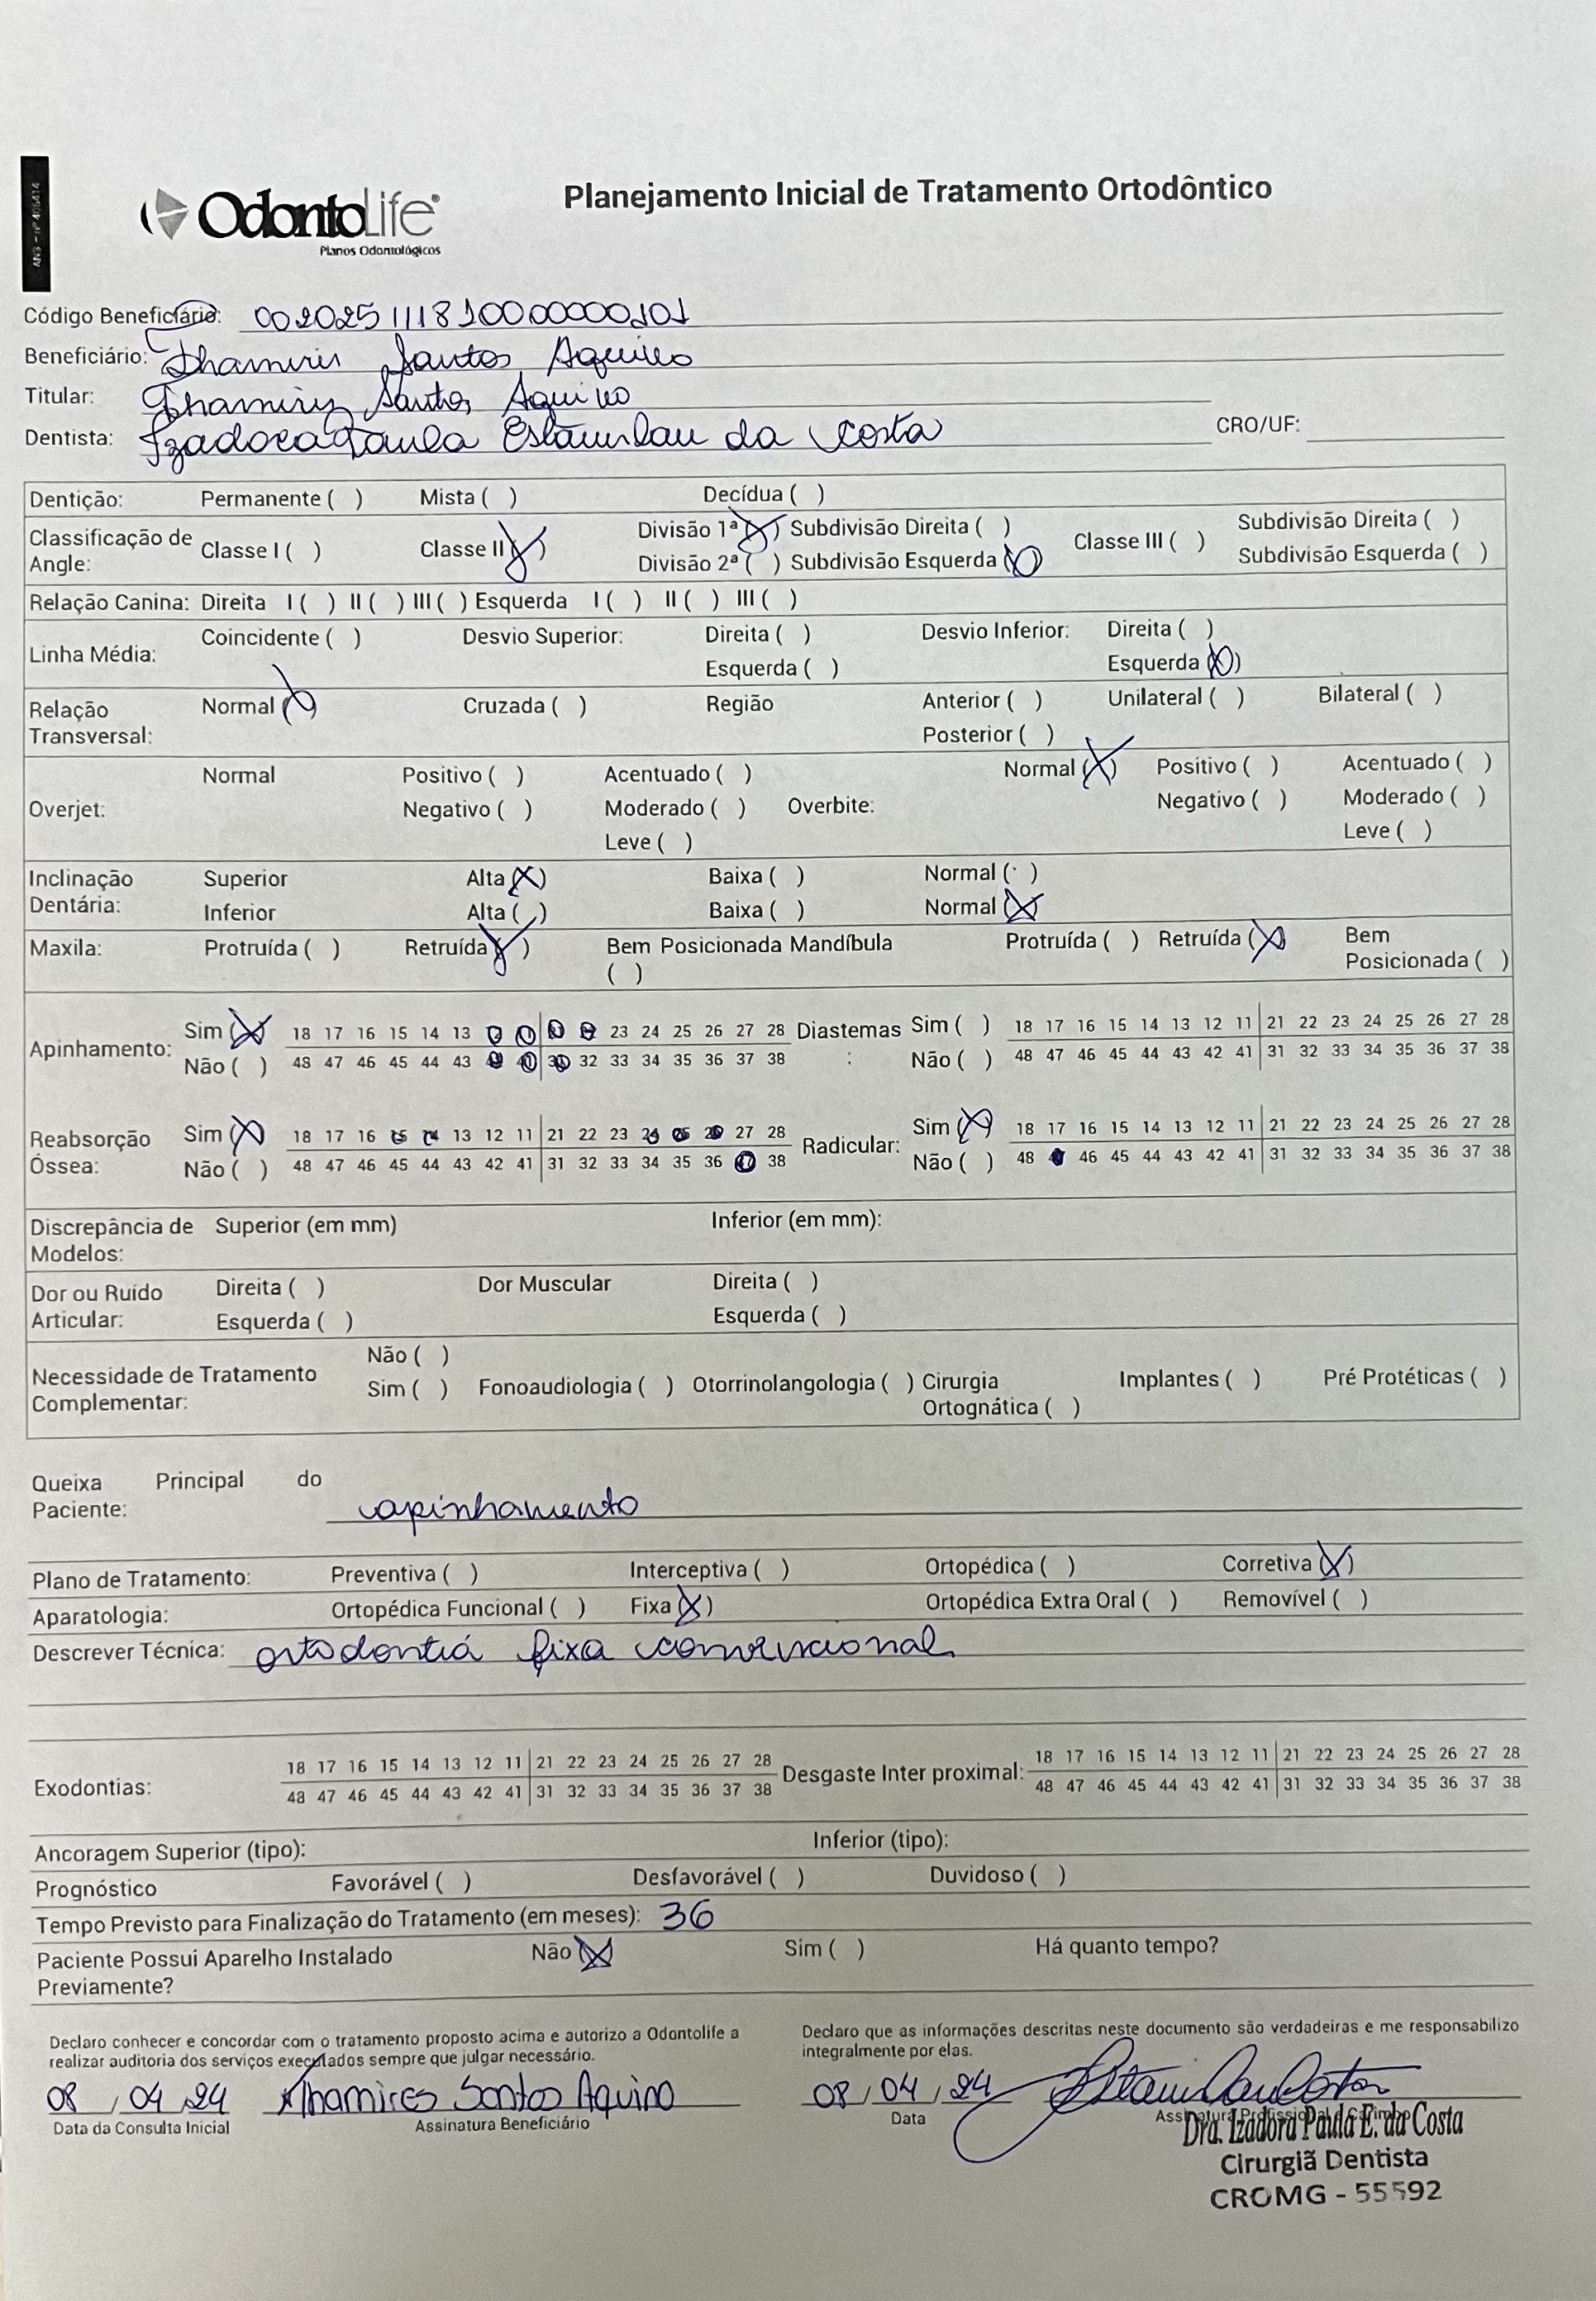 ANS - nº 406414
OdontoLife®
Planos Odontológicos
Planejamento Inicial de Tratamento Ortodôntico
Código Beneficiário: 0020251118100000000101
Beneficiário: Thamires Santos Aquino
Titular: Thamires Santos Aquino
Dentista: Izadora Paula Estanislau da Costa CRO/UF:
Dentição: Permanente ( ) Mista ( ) Decídua ( )
Classificação de Angle: Classe I ( ) Classe II (X) Divisão 1ª (X) Subdivisão Direita ( ) Classe III ( ) Subdivisão Direita ( )
Divisão 2ª ( ) Subdivisão Esquerda (X) Subdivisão Esquerda ( )
Relação Canina: Direita I ( ) II ( ) III ( ) Esquerda I ( ) II ( ) III ( )
Linha Média: Coincidente ( ) Desvio Superior: Direita ( ) Desvio Inferior: Direita ( )
Esquerda ( ) Esquerda (X)
Relação Transversal: Normal (X) Cruzada ( ) Região Anterior ( ) Unilateral ( ) Bilateral ( )
Posterior ( )
Overjet: Normal Positivo ( ) Acentuado ( ) Overbite: Normal (X) Positivo ( ) Acentuado ( )
Negativo ( ) Moderado ( ) Negativo ( ) Moderado ( )
Leve ( ) Leve ( )
Inclinação Dentária: Superior Alta (X) Baixa ( ) Normal ( )
Inferior Alta ( ) Baixa ( ) Normal (X)
Maxila: Protruída ( ) Retruída (X) Bem Posicionada ( ) Mandíbula Protruída ( ) Retruída (X) Bem Posicionada ( )
Apinhamento: Sim (X) 18 17 16 15 14 13 12 11 21 22 23 24 25 26 27 28 Diastemas: Sim ( ) 18 17 16 15 14 13 12 11 21 22 23 24 25 26 27 28
Não ( ) 48 47 46 45 44 43 42 41 31 32 33 34 35 36 37 38 Não ( ) 48 47 46 45 44 43 42 41 31 32 33 34 35 36 37 38
Reabsorção Óssea: Sim (X) 18 17 16 15 14 13 12 11 21 22 23 24 25 26 27 28 Radicular: Sim (X) 18 17 16 15 14 13 12 11 21 22 23 24 25 26 27 28
Não ( ) 48 47 46 45 44 43 42 41 31 32 33 34 35 36 37 38 Não ( ) 48 47 46 45 44 43 42 41 31 32 33 34 35 36 37 38
Discrepância de Modelos: Superior (em mm) Inferior (em mm):
Dor ou Ruído Articular: Direita ( ) Dor Muscular Direita ( )
Esquerda ( ) Esquerda ( )
Necessidade de Tratamento Complementar: Não ( )
Sim ( ) Fonoaudiologia ( ) Otorrinolangologia ( ) Cirurgia Ortognática ( ) Implantes ( ) Pré Protéticas ( )
Queixa Principal do Paciente: apinhamento
Plano de Tratamento: Preventiva ( ) Interceptiva ( ) Ortopédica ( ) Corretiva (X)
Aparatologia: Ortopédica Funcional ( ) Fixa (X) Ortopédica Extra Oral ( ) Removível ( )
Descrever Técnica: ortodontia fixa convencional
Exodontias: 18 17 16 15 14 13 12 11 21 22 23 24 25 26 27 28 Desgaste Inter proximal: 18 17 16 15 14 13 12 11 21 22 23 24 25 26 27 28
48 47 46 45 44 43 42 41 31 32 33 34 35 36 37 38 48 47 46 45 44 43 42 41 31 32 33 34 35 36 37 38
Ancoragem Superior (tipo): Inferior (tipo):
Prognóstico Favorável ( ) Desfavorável ( ) Duvidoso ( )
Tempo Previsto para Finalização do Tratamento (em meses): 36
Paciente Possui Aparelho Instalado Previamente? Não (X) Sim ( ) Há quanto tempo?
Declaro conhecer e concordar com o tratamento proposto acima e autorizo a Odontolife a
realizar auditoria dos serviços executados sempre que julgar necessário.
Declaro que as informações descritas neste documento são verdadeiras e me responsabilizo
integralmente por elas.
08/04/24 Thamires Santos Aquino 08/04/24 Estanislau Costa
Data da Consulta Inicial Assinatura Beneficiário Data Assinatura Profissional e Carimbo
Dra. Izadora Paula E. da Costa
Cirurgiã Dentista
CROMG - 55592